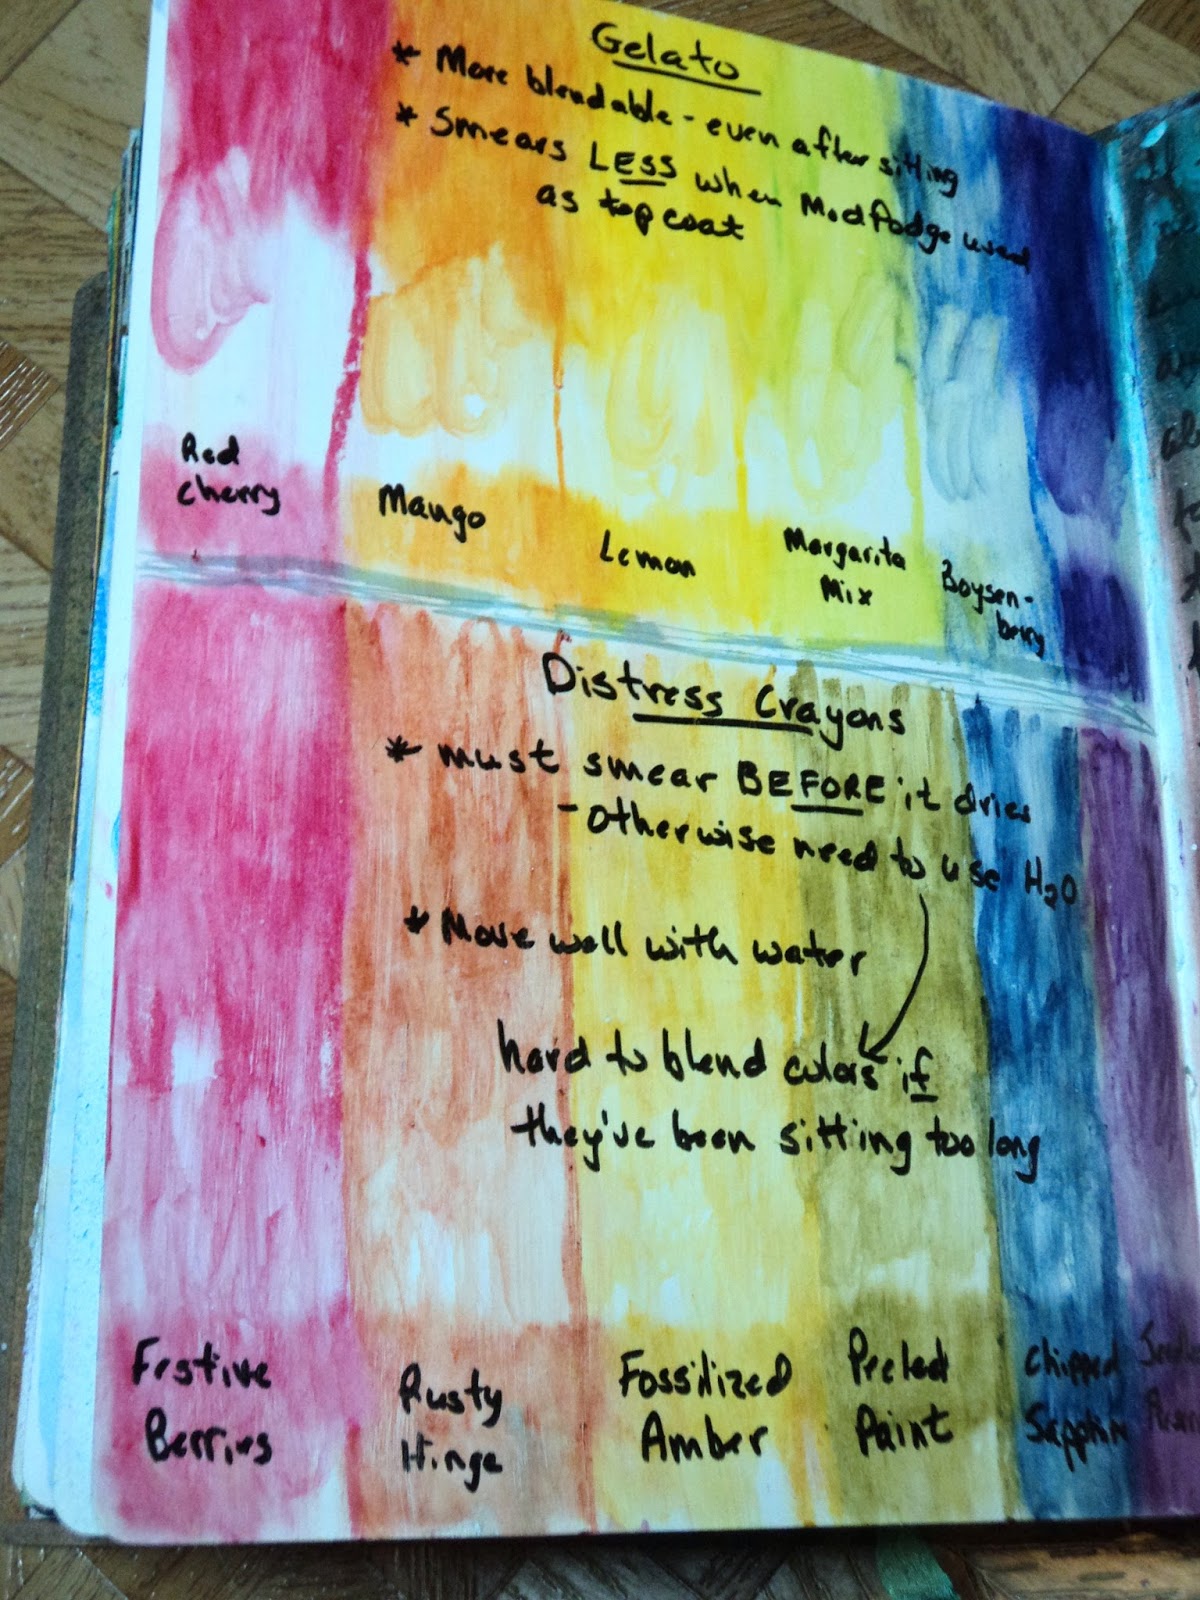 Gelato
* More blendable - even after sitting
* Smears LESS when Modpodge used
as top coat
Red
Cherry
Mango
Lemon
Margarita
Mix
Boysen-
berry
Distress Crayons
* must smear BEFORE it dries
- otherwise need to use H2O
* Move well with water
hard to blend colors if
they've been sitting too long
Festive
Berries
Rusty
Hinge
Fossilized
Amber
Peeled
Paint
Chipped
Sapphire